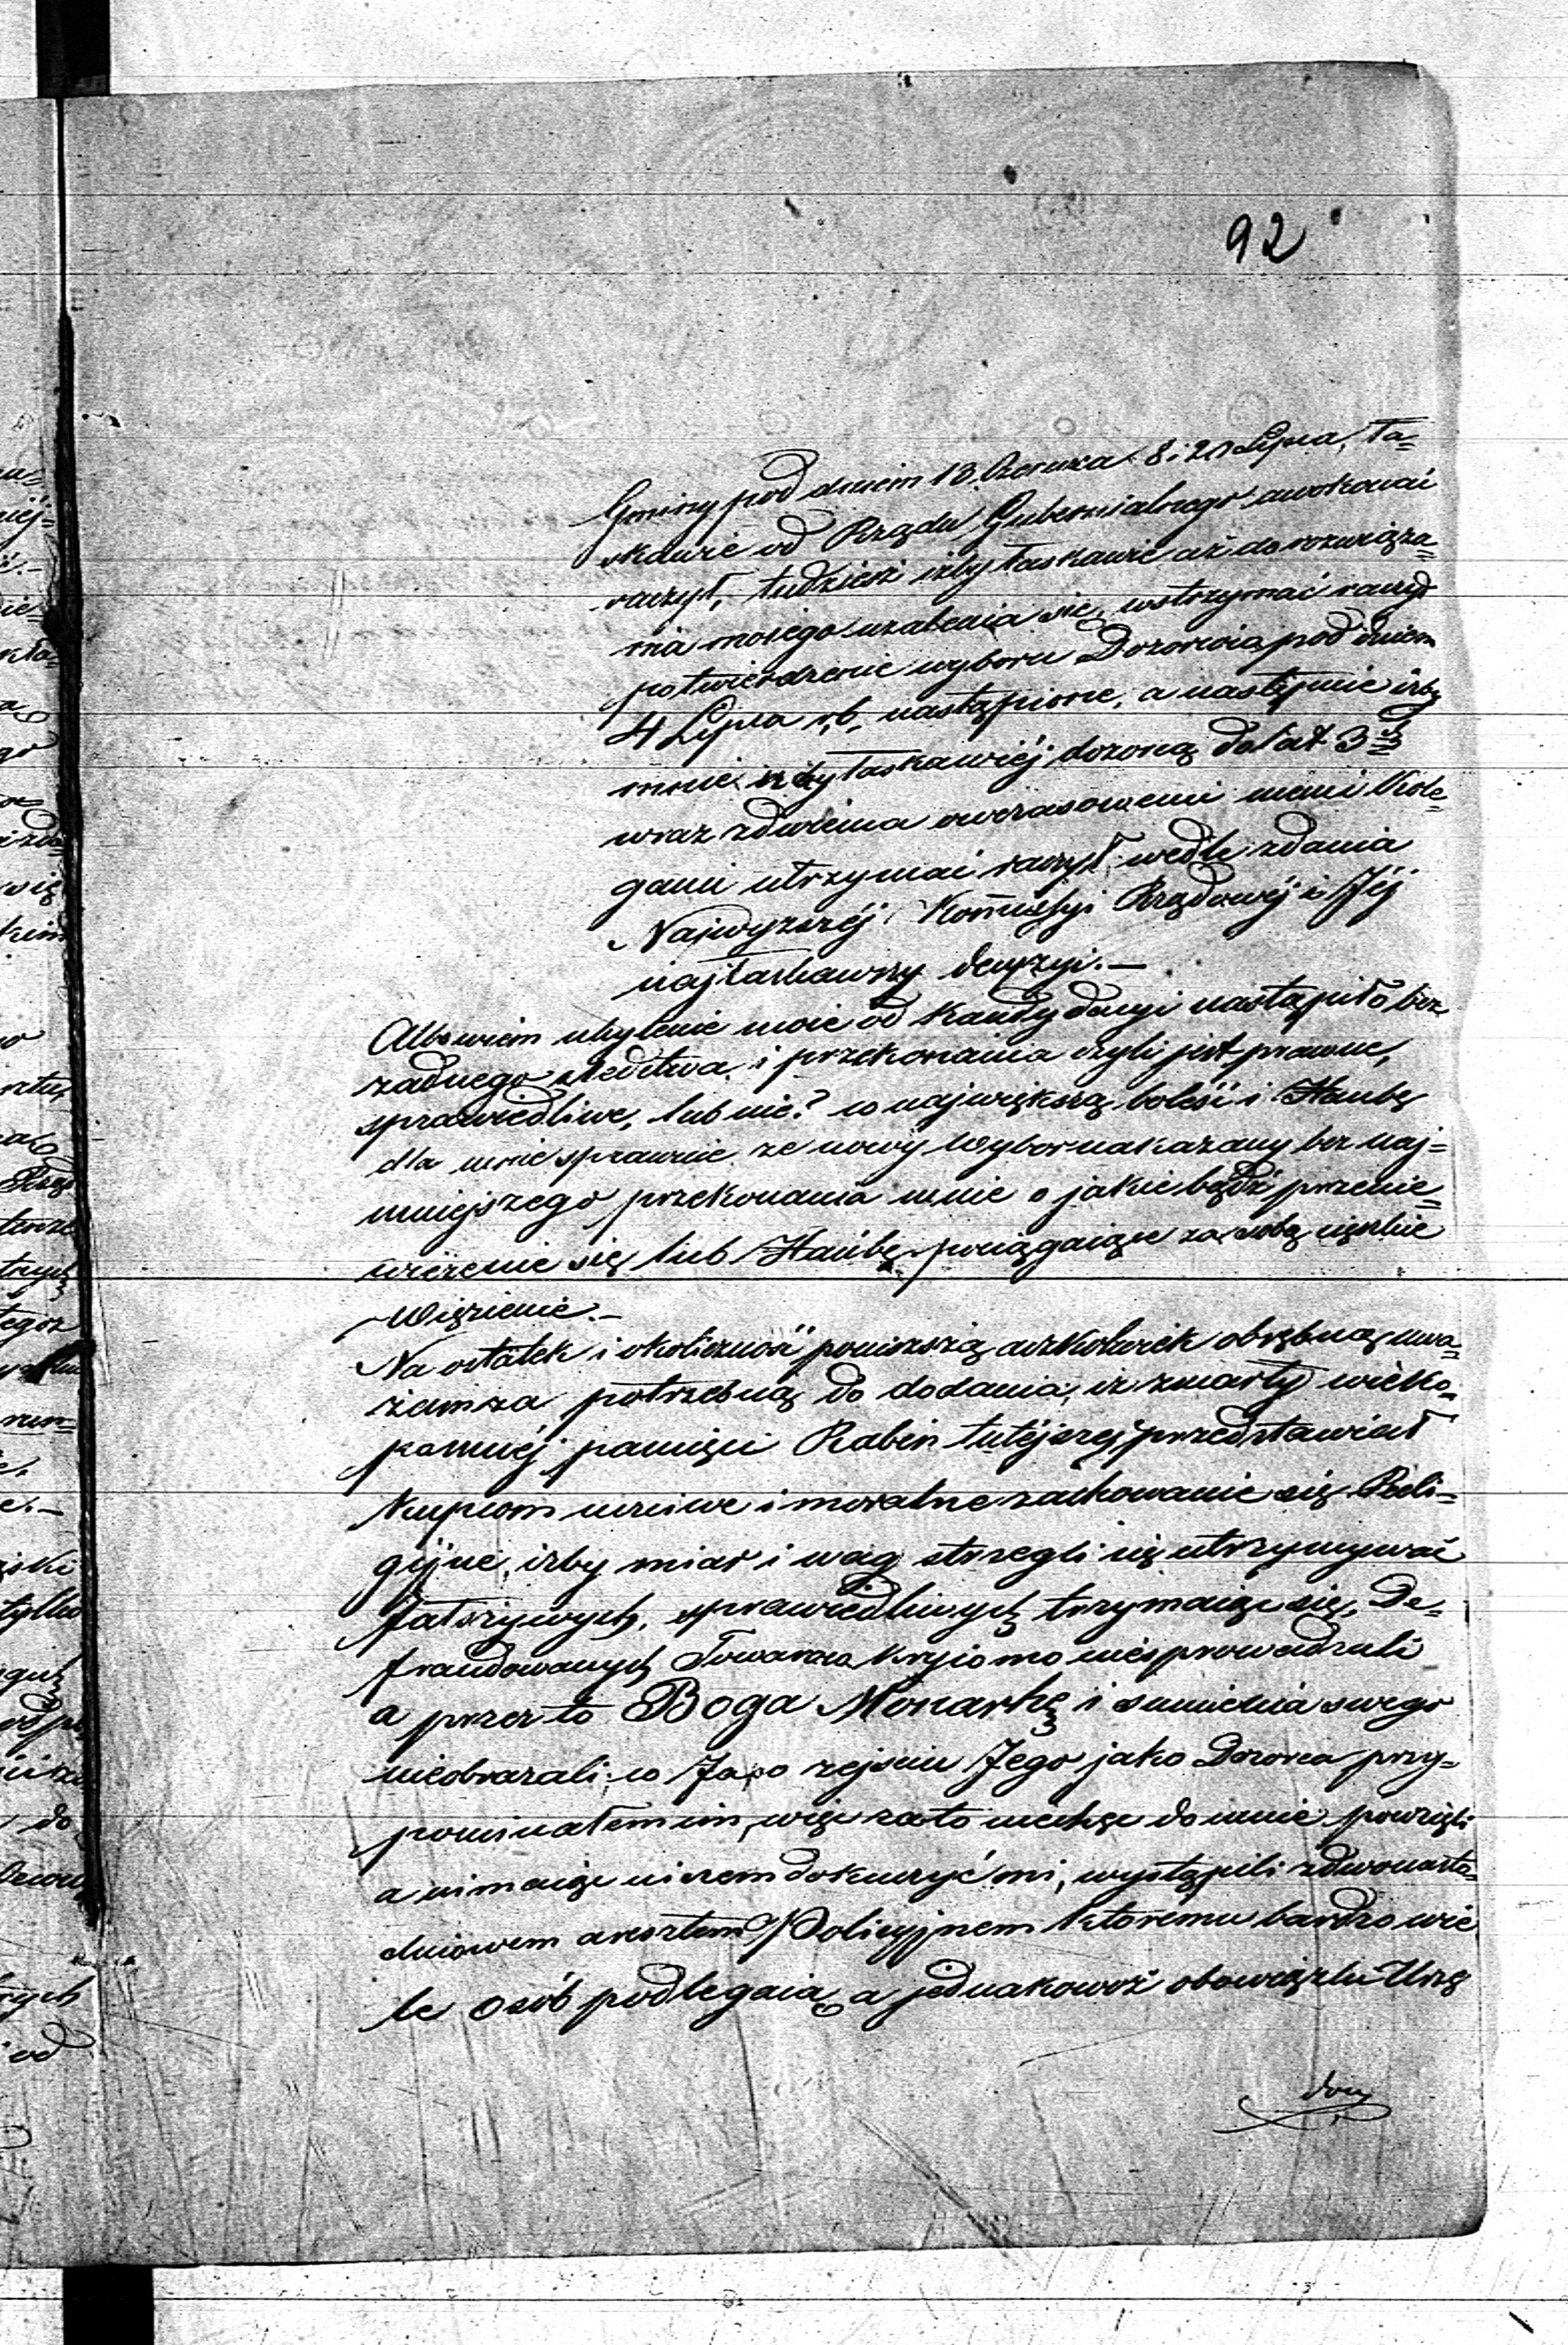 92
Gminy pod dniem 13 Czerwca 8 i 20 Lipca, ła-
skawie od Rządu Gubernialnego awokować
raczył, tudzież iżby łaskawie aż do rozwiąza-
nia mojego użalenia się, wstrzymać raczył
potwierdzenie wyboru Dozorcia pod dniem
4 Lipca r. b. nastąpione, a następnie iżby
mnie łaskawiéj dozorcą do lat 3ch
wraz z dwiema owczasowemi memi Kole-
gami utrzymać raczył, wedle zdania
Najwyższéj Kommissyi Rządowéj i Jéj
najłaskawszy decyzyi.—
Albowiem uchylenie moie od Kandydacyi nastąpiło bez
żadnego śledztwa i przekonania czyli jest prawne,
sprawiedliwe, lub nie? co największą boleść i Hańbę
dla mnie sprawuie że nowy wybor nakazany bez naj-
mniejszego przekonania mnie o jakie bądź przenie-
wierzenie się lub Hańbę pociągaiące za sobą ciężkie
Więzienie.—
Na ostatek i okoliczność poniższą aczkolwiek obrębną uwa-
żam za potrzebną do dodania, iż zmarły wieko-
pomnéj pamięci Rabin tutéjszy, przedstawiał
Kupcom uczciwe i moralne zachowanie się Reli-
gijne, iżby miar i wag strzegli się utrzymywać
fałszywych, sprawiedliwych trzymaiąc się, De-
fraudowanych Towarow kryiomo niesprowadzali
a przez to Boga Monarchę i sumienia swego
nieobrazali, co Ja po zejściu Jego jako Dozorca przy-
pominałem im, więc za to niechęc do mnie powzięli
a nimaiąc niczem dokuczyć mi, wystąpili z dwonasto-
dniowem aresztem Policyjnem ktoremu bardzo wie
le osób podlegaią a jednakowoż obowiązki Urzę
dowy